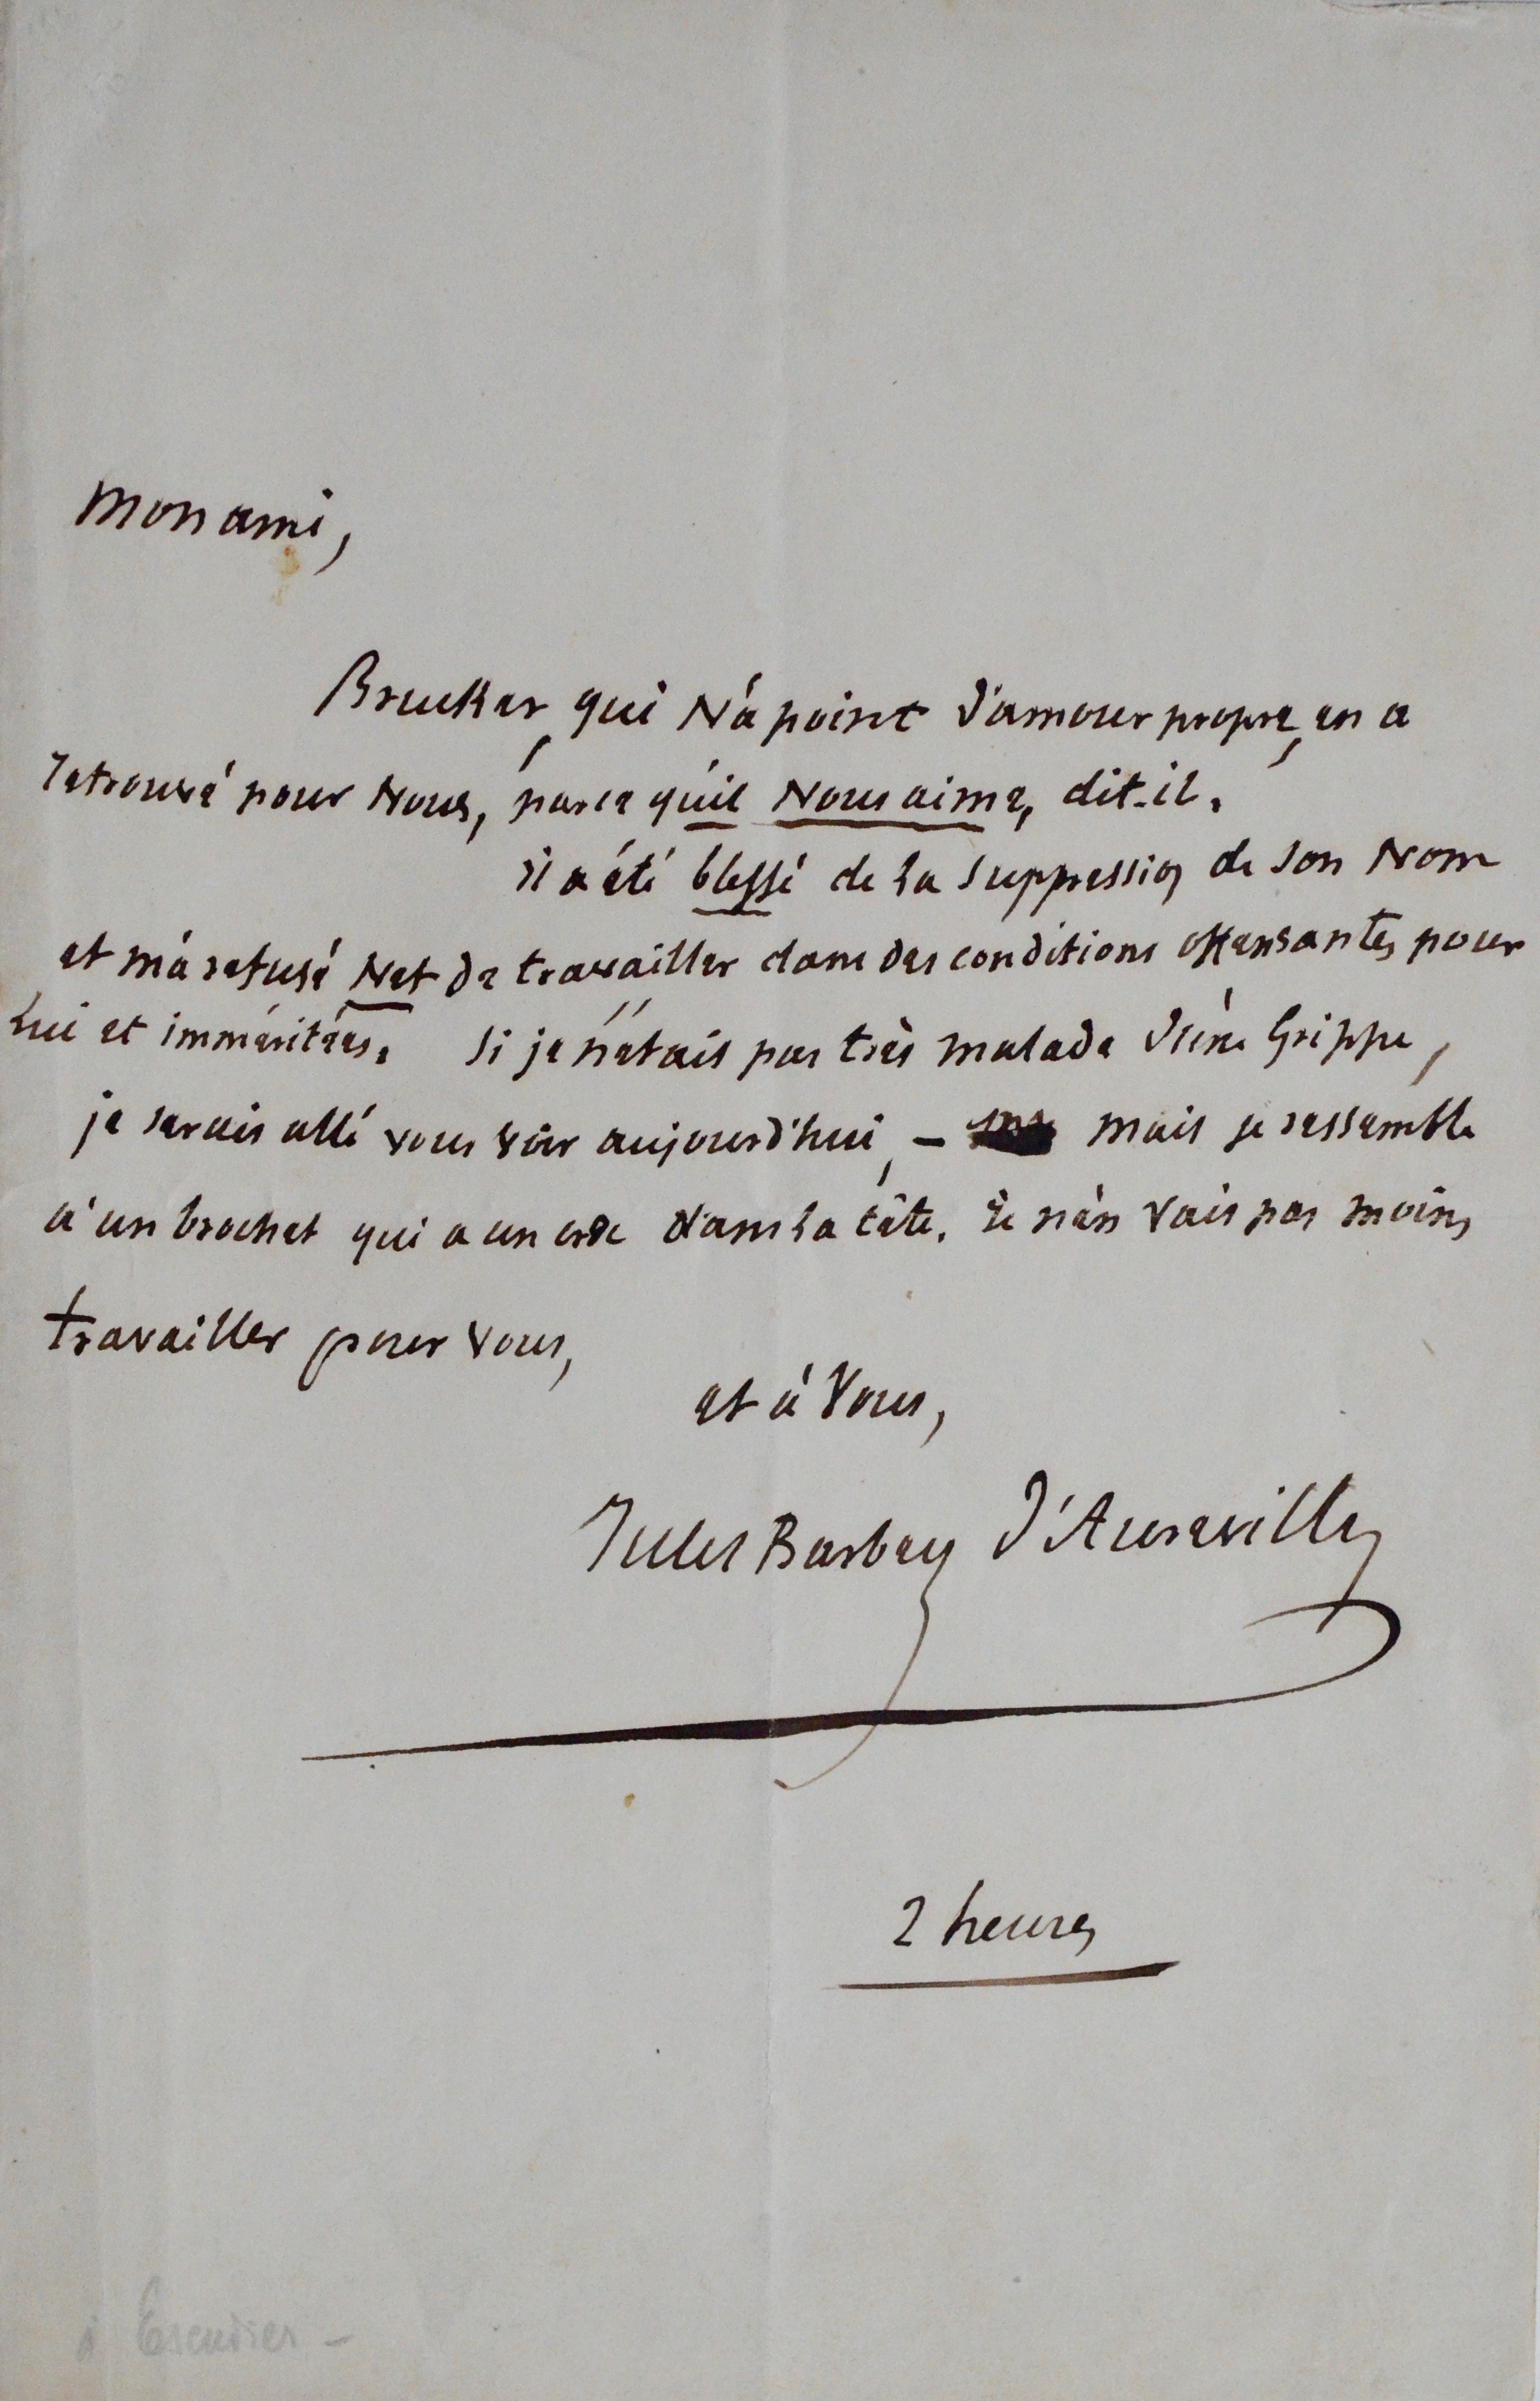 Mon ami,
Brucker, qui N'a point d'amour propre, en a
retrouvé pour Nous, parce qu'il Nous aime, dit-il.
il a été blessé de la suppression de son Nom
et m'a refusé Net de travailler dans des conditions offensantes pour
lui et imméritées. Si je n'étais pas très malade d'une Grippe,
je serais allé vous voir aujourd'hui, – mais je ressemble
à un brochet qui a un dans la tête. Je n'en vais pas moins
travailler pour vous,
et à Vous,
Jules Barbey d'Aurevilly
2 heures
à Escudier –